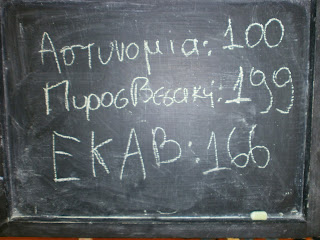 Αστυνομία: 100
Πυροσβεσική: 199
ΕΚΑΒ: 166